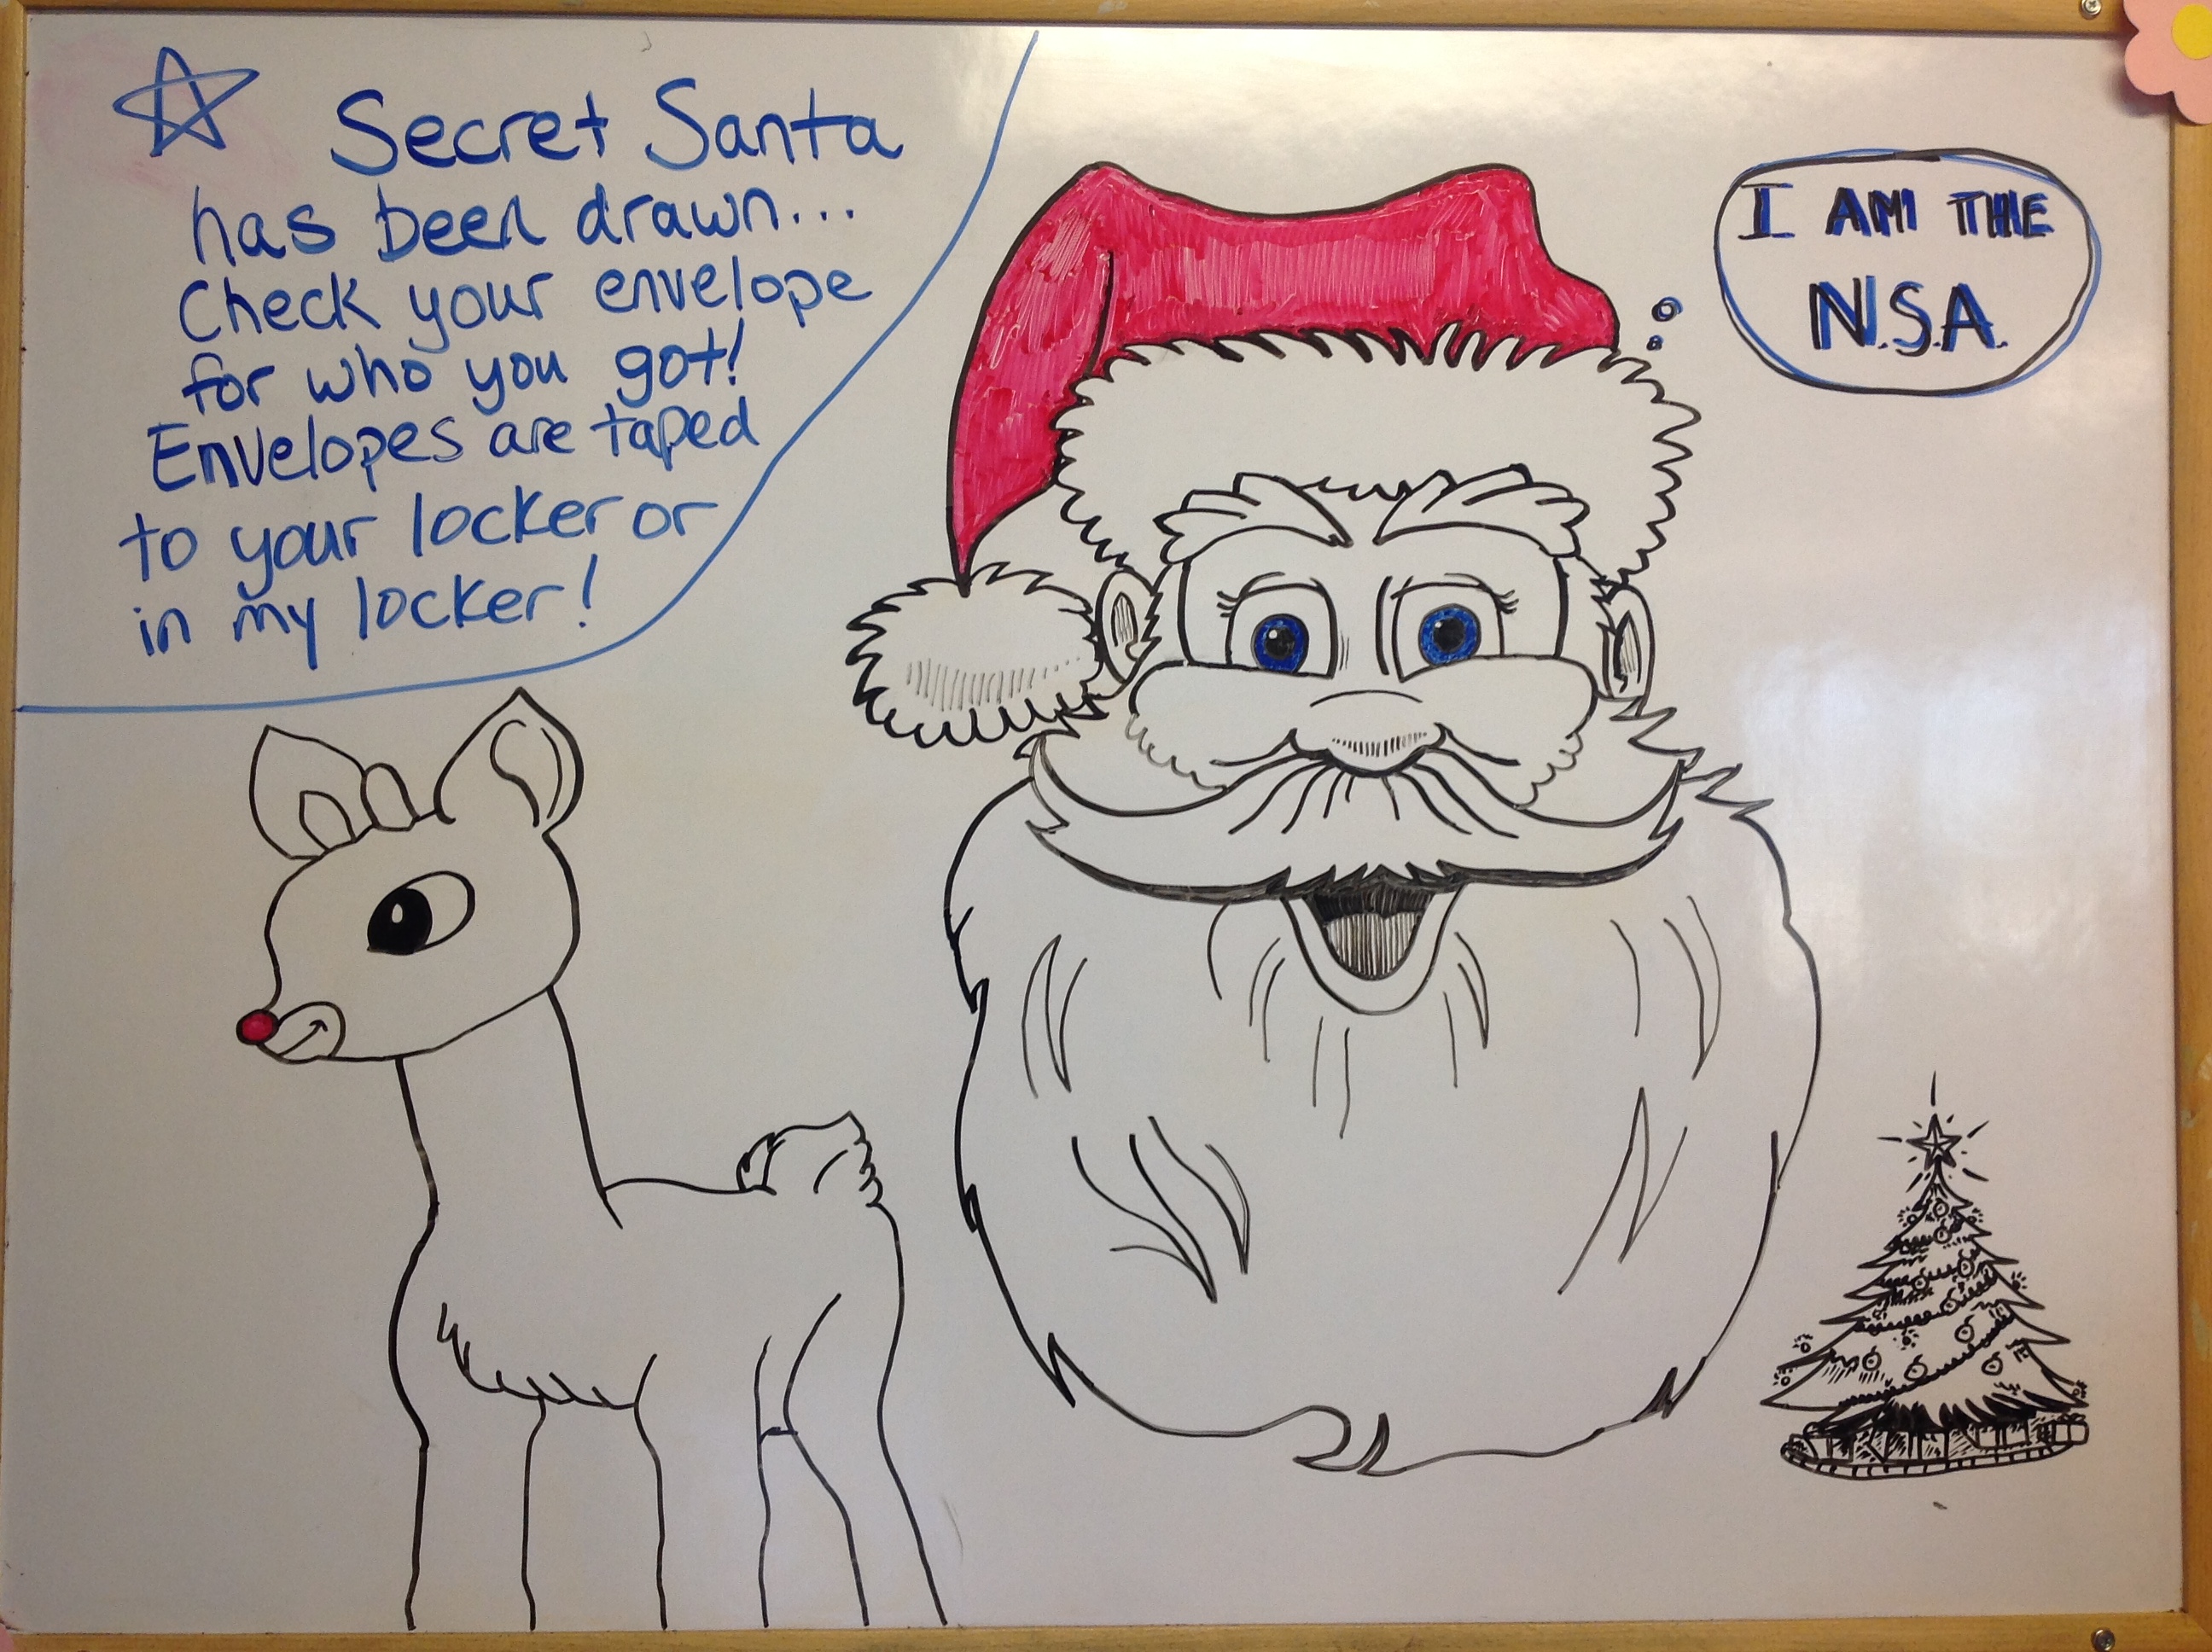 Secret Santa
has been drawn...
Check your envelope
for who you got!
Envelopes are taped
to your locker or
in my locker!
I AM THE
N.S.A.